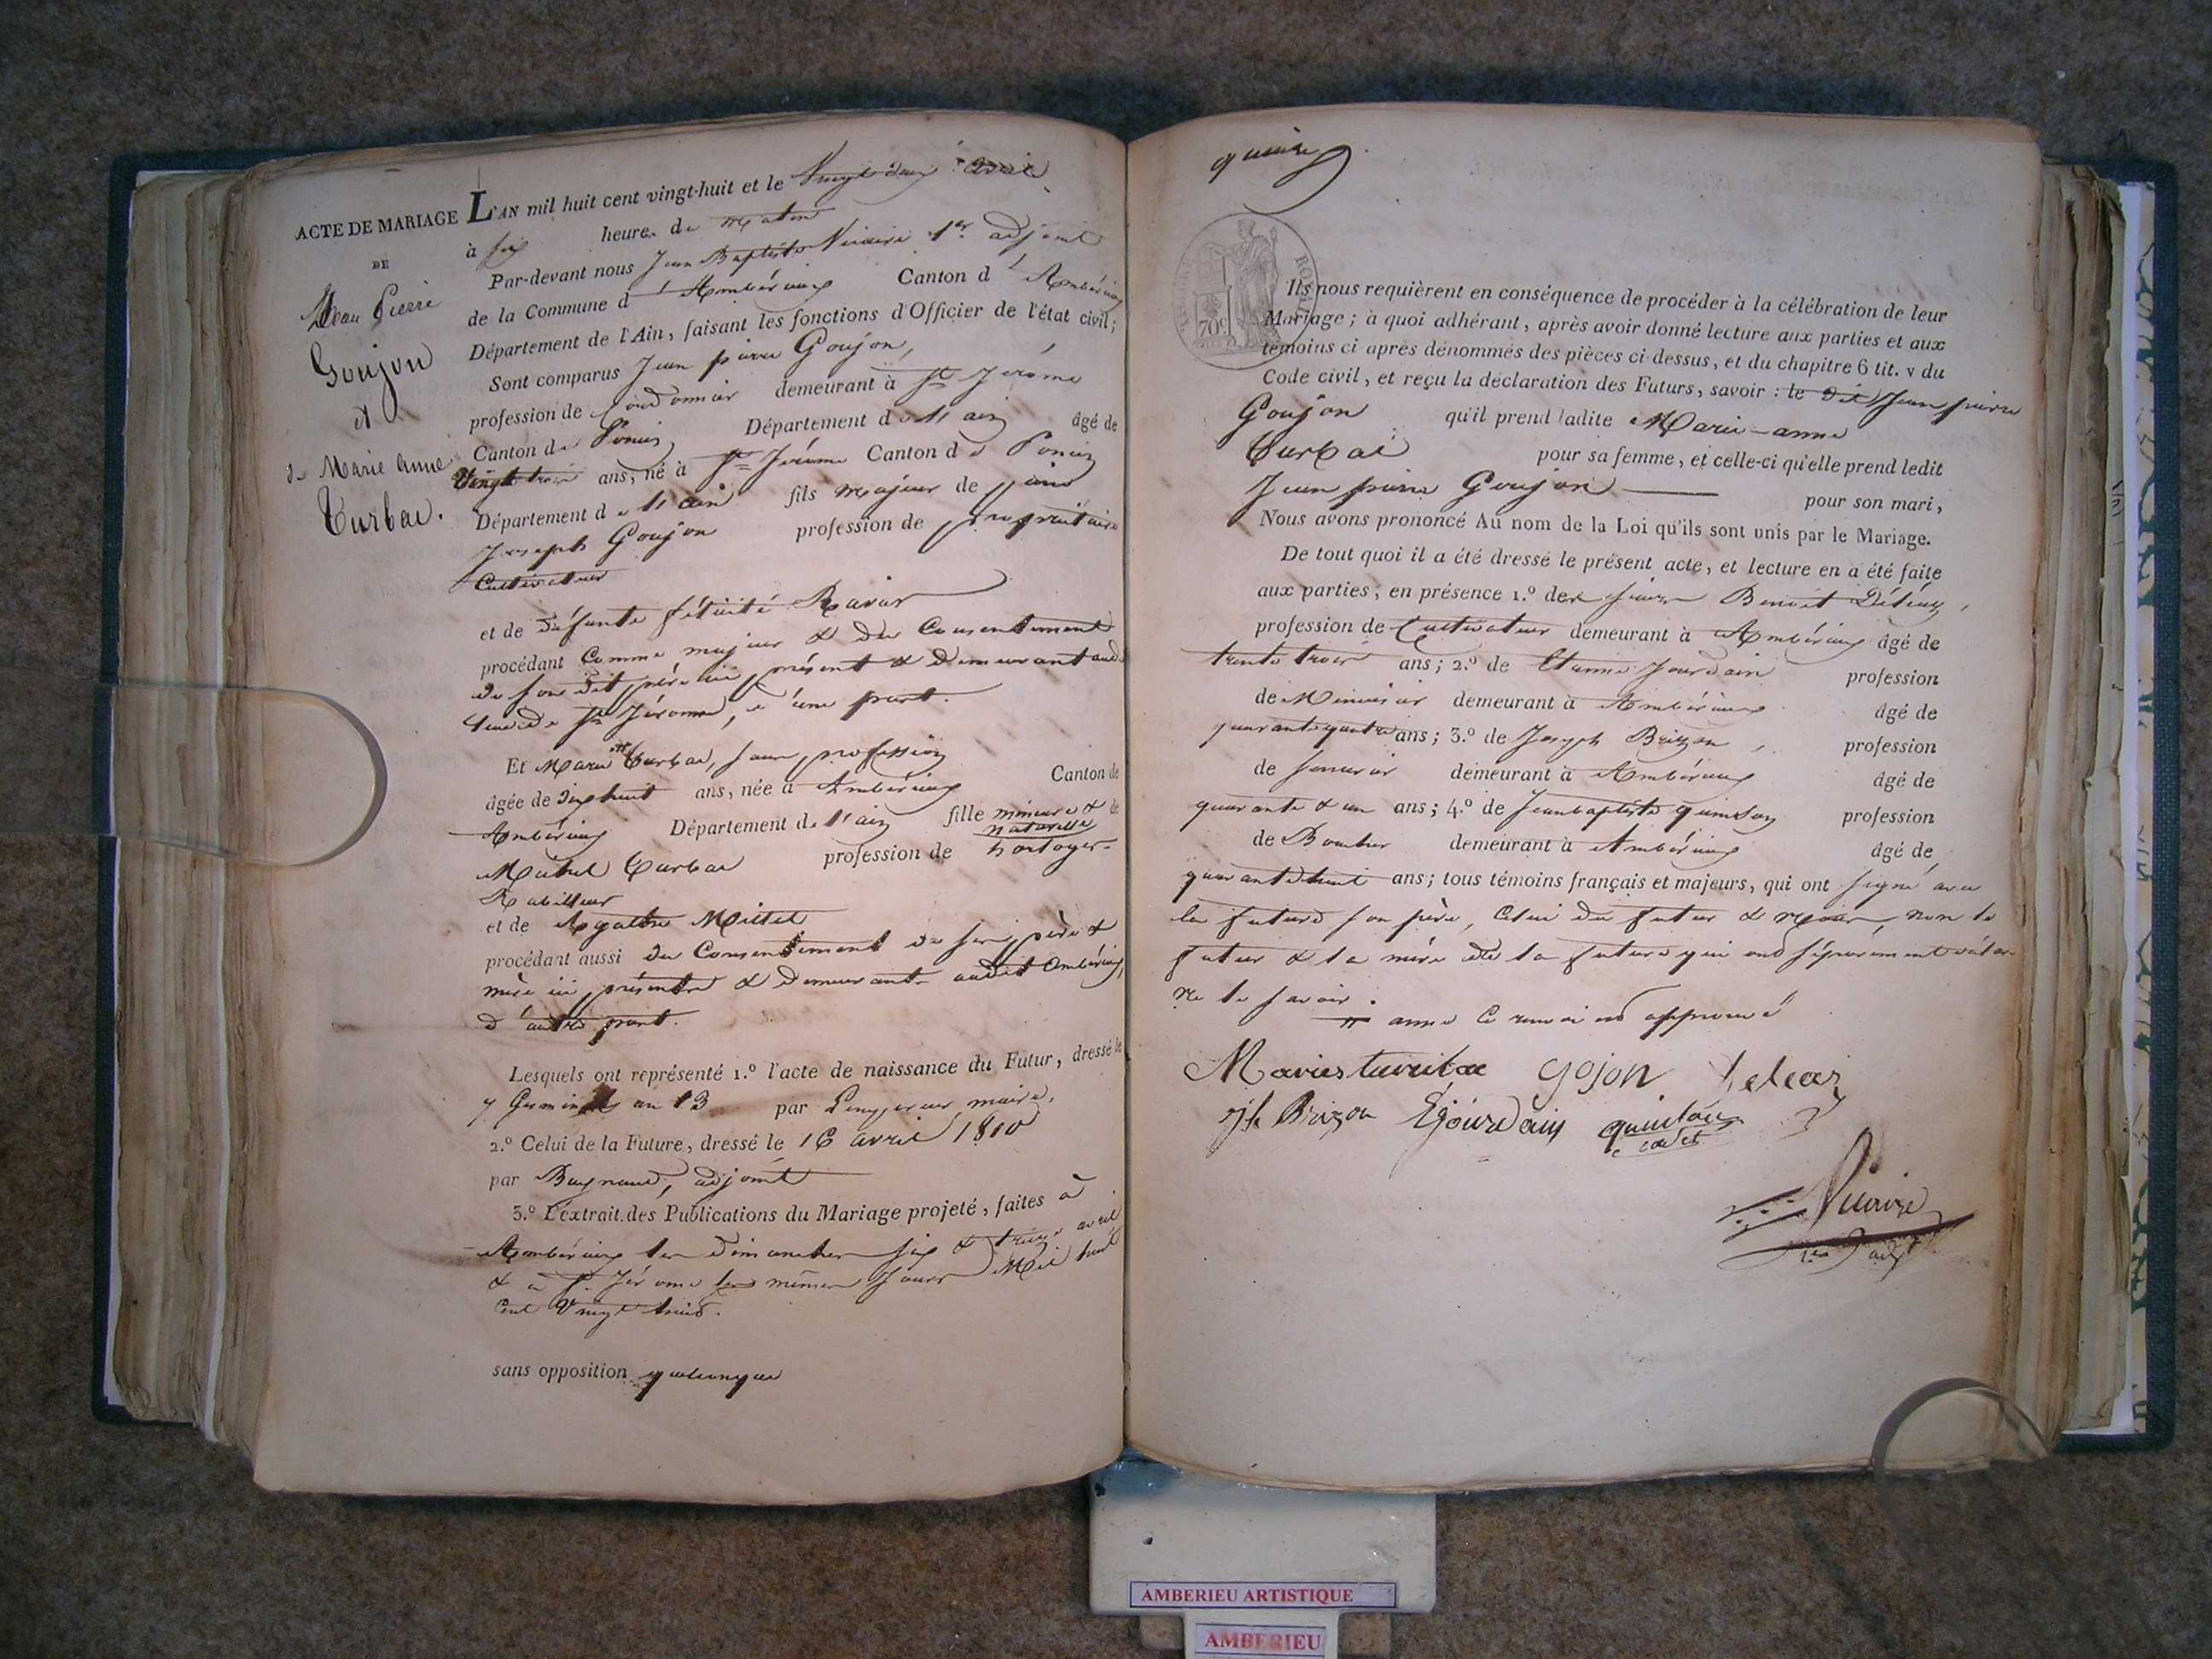 ACTE DE MARIAGE
DE
Jean Pierre
Goujon
et
de Marie Anne
Curbai.
L'AN mil huit cent vingt-huit et le Vingt deux avril
à six heures du matin
Par-devant nous Jean Baptiste Vicaire 1er adjoint
de la Commune d'Ambérieux Canton d'Ambérieux
Département de l'Ain, faisant les fonctions d'Officier de l'état civil;
Sont comparus Jean pierre Goujon,
profession de Cordonnier demeurant à St Jérome
Canton de Poncin Département de l'ain âgé de
Vingt trois ans, né à St Jérome Canton de Poncin
Département de l'ain fils majeur de
Joseph Goujon profession de propriétaire
Cultivateur
et de défunte félicité Ravar
procédant Comme majeur & du Consentement
de son dit père ici présent & demeurant aud.
lieu de St Jérome, d'une part.
Et Marie " Curbai, sans profession
âgée de dix huit ans, née à Ambérieux Canton de
Ambérieux Département de l'ain fille mineure & naturelle de
Michel Curbai profession de horloger
Rabilleur
et de Agathe Millet
procédant aussi du Consentement de ses père &
mère ici présents & demeurants audit Ambérieux,
d'autre part.
Lesquels ont représenté 1.º l'acte de naissance du Futur, dressé le
7 Germinal an 13 par maire,
2.º Celui de la Future, dressé le 16 avril 1810
par adjoint
3.º L'extrait des Publications du Mariage projeté, faites à
Ambérieux les dimanches six & treize avril
& à St Jérome les mêmes Jours Mil huit
Cent Vingt huit.
sans opposition quelconque
quinze
ROYAL
70c
Ils nous requièrent en conséquence de procéder à la célébration de leur
Mariage; à quoi adhérant, après avoir donné lecture aux parties et aux
témoins ci après dénommés des pièces ci-dessus, et du chapitre 6 tit. v du
Code civil, et reçu la déclaration des Futurs, savoir: le dit Jean pierre
Goujon qu'il prend ladite Marie-anne
Curbai pour sa femme, et celle-ci qu'elle prend ledit
Jean pierre Goujon pour son mari,
Nous avons prononcé Au nom de la Loi qu'ils sont unis par le Mariage.
De tout quoi il a été dressé le présent acte, et lecture en a été faite
aux parties, en présence 1.º des sieurs Benoit
profession de Cultivateur demeurant à Ambérieux âgé de
trente trois ans; 2.º de Etienne Jourdain profession
de Menuisier demeurant à Ambérieux âgé de
quarante quatre ans; 3.º de Joseph Brizon, profession
de serrurier demeurant à Ambérieux âgé de
quarante & un ans; 4.º de Jean baptiste quinson profession
de Boucher demeurant à Ambérieux âgé de
quarante huit ans; tous témoins français et majeurs, qui ont signé avec
la future son père, Celui du futur & nous, non le
futur & la mère de la future qui ont séparément déclaré
ne le savoir.
" anne Ce renvoi est approuvé
Gojon
jh Brizon E jourdain quinson
cadet
Vicaire
1er adjt
AMBERIEU ARTISTIQUE
AMBERIEU